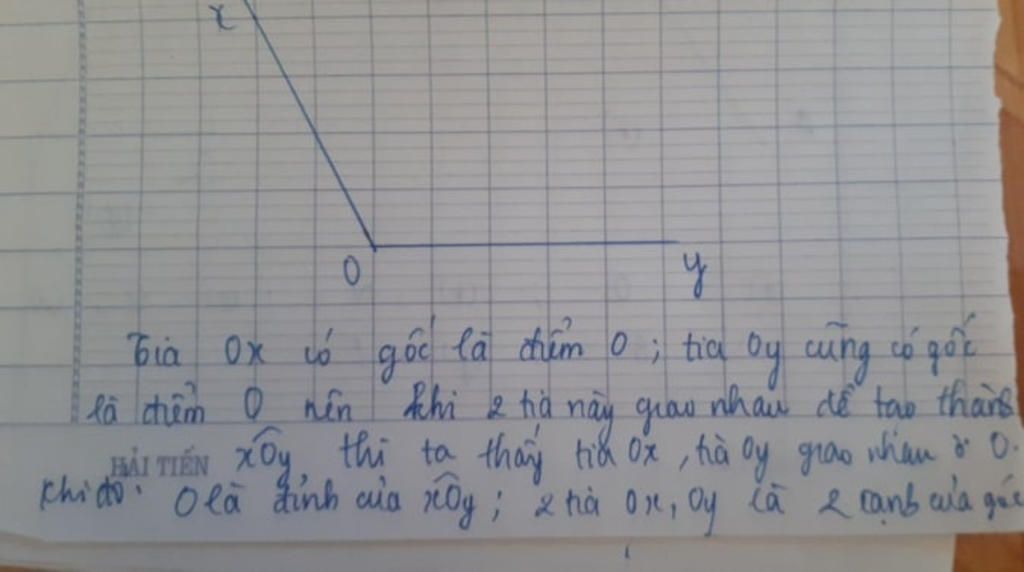 x
O
y
Tia Ox có gốc là điểm O ; tia Oy cũng có gốc
là điểm O nên khi 2 tia này giao nhau để tạo thành
HẢI TIẾN xOy thì ta thấy tia Ox , tia Oy giao nhau ở O.
Khi đó: O là đỉnh của xOy ; 2 tia Ox, Oy là 2 cạnh của góc